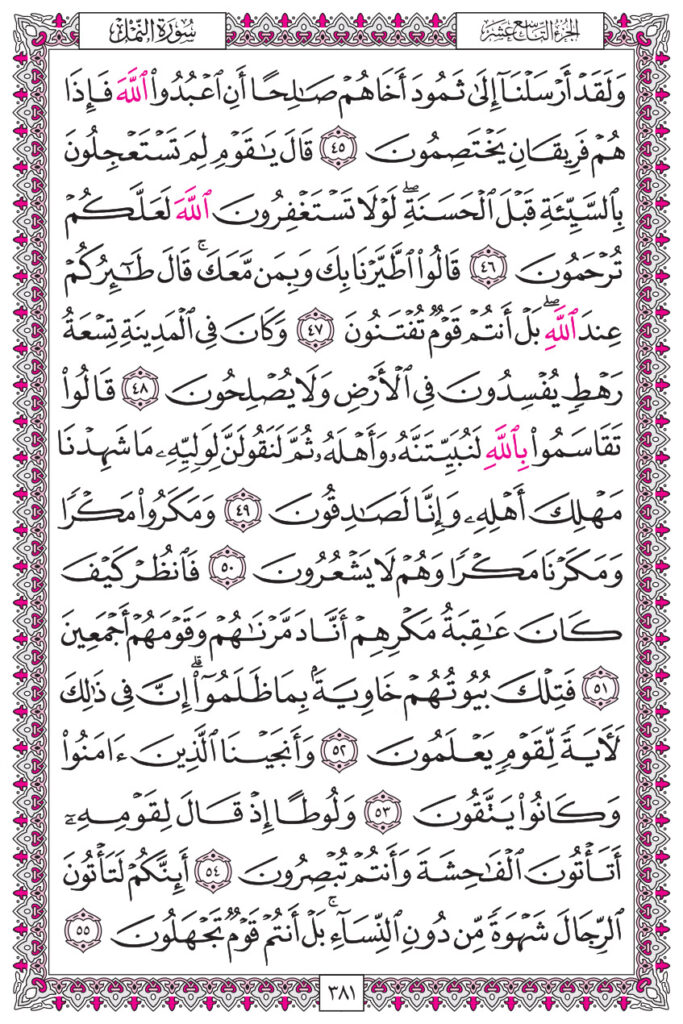 سُورَةُ النَّمْل
الجُزْءُ التَّاسِعَ عَشَرَ
وَلَقَدْ أَرْسَلْنَآ إِلَىٰ ثَمُودَ أَخَاهُمْ صَٰلِحًا أَنِ ٱعْبُدُوا۟ ٱللَّهَ فَإِذَا
هُمْ فَرِيقَانِ يَخْتَصِمُونَ ٤٥ قَالَ يَٰقَوْمِ لِمَ تَسْتَعْجِلُونَ
بِٱلسَّيِّئَةِ قَبْلَ ٱلْحَسَنَةِۖ لَوْلَا تَسْتَغْفِرُونَ ٱللَّهَ لَعَلَّكُمْ
تُرْحَمُونَ ٤٦ قَالُوا۟ ٱطَّيَّرْنَا بِكَ وَبِمَن مَّعَكَۚ قَالَ طَٰٓئِرُكُمْ
عِندَ ٱللَّهِۖ بَلْ أَنتُمْ قَوْمٌ تُفْتَنُونَ ٤٧ وَكَانَ فِى ٱلْمَدِينَةِ تِسْعَةُ
رَهْطٍ يُفْسِدُونَ فِى ٱلْأَرْضِ وَلَا يُصْلِحُونَ ٤٨ قَالُوا۟
تَقَاسَمُوا۟ بِٱللَّهِ لَنُبَيِّتَنَّهُۥ وَأَهْلَهُۥ ثُمَّ لَنَقُولَنَّ لِوَلِيِّهِۦ مَا شَهِدْنَا
مَهْلِكَ أَهْلِهِۦ وَإِنَّا لَصَٰدِقُونَ ٤٩ وَمَكَرُوا۟ مَكْرًا
وَمَكَرْنَا مَكْرًا وَهُمْ لَا يَشْعُرُونَ ٥٠ فَٱنظُرْ كَيْفَ
كَانَ عَٰقِبَةُ مَكْرِهِمْ أَنَّا دَمَّرْنَٰهُمْ وَقَوْمَهُمْ أَجْمَعِينَ
٥١ فَتِلْكَ بُيُوتُهُمْ خَاوِيَةًۢ بِمَا ظَلَمُوٓا۟ۗ إِنَّ فِى ذَٰلِكَ
لَءَايَةً لِّقَوْمٍ يَعْلَمُونَ ٥٢ وَأَنجَيْنَا ٱلَّذِينَ ءَامَنُوا۟
وَكَانُوا۟ يَتَّقُونَ ٥٣ وَلُوطًا إِذْ قَالَ لِقَوْمِهِۦٓ
أَتَأْتُونَ ٱلْفَٰحِشَةَ وَأَنتُمْ تُبْصِرُونَ ٥٤ أَئِنَّكُمْ لَتَأْتُونَ
ٱلرِّجَالَ شَهْوَةً مِّن دُونِ ٱلنِّسَآءِۚ بَلْ أَنتُمْ قَوْمٌ تَجْهَلُونَ ٥٥
٣٨١